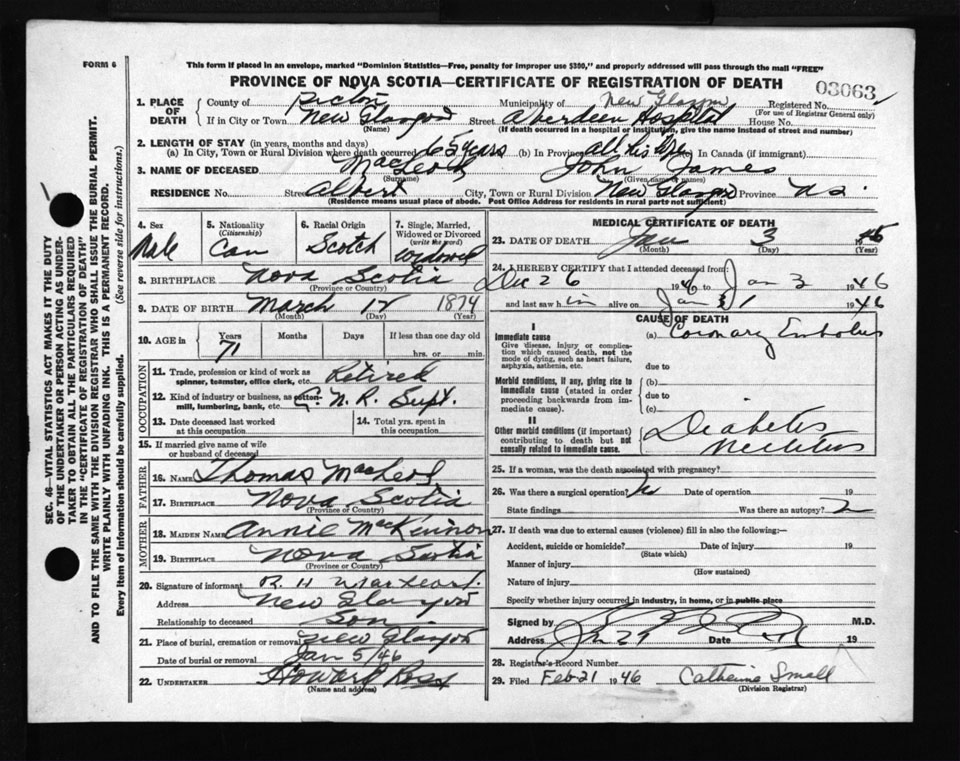 FORM 6
This form if placed in an envelope, marked "Dominion Statistics—Free, penalty for improper use $300," and properly addressed will pass through the mail "FREE"
PROVINCE OF NOVA SCOTIA—CERTIFICATE OF REGISTRATION OF DEATH
03063
1. PLACE OF DEATH
County of Pictou Municipality of New Glasgow Registered No.
(For use of Registrar General only)
If in City or Town New Glasgow Street Aberdeen Hospital House No.
(Name) (If death occurred in a hospital or institution, give the name instead of street and number)
2. LENGTH OF STAY (in years, months and days)
(a) In City, Town or Rural Division where death occurred 65 years (b) In Province all his life (c) In Canada (if immigrant)
3. NAME OF DECEASED MacLeod John James
(Surname) (Given name or names)
RESIDENCE No. Street Albert City, Town or Rural Division New Glasgow Province N.S.
(Residence means usual place of abode. Post Office Address for residents in rural parts not sufficient)
4. Sex
Male
5. Nationality
(Citizenship)
Can
6. Racial Origin
Scotch
7. Single, Married, Widowed or Divorced
(write the word)
Widowed
8. BIRTHPLACE Nova Scotia
(Province or Country)
9. DATE OF BIRTH March 12 1874
(Month) (Day) (Year)
10. AGE in Years Months Days If less than one day old
71 hrs. or min.
OCCUPATION
11. Trade, profession or kind of work as spinner, teamster, office clerk, etc. Retired
12. Kind of industry or business, as cotton-mill, lumbering, bank, etc. C.N.R. Supt.
13. Date deceased last worked at this occupation
14. Total yrs. spent in this occupation
15. If married give name of wife or husband of deceased
FATHER
16. NAME Thomas MacLeod
17. BIRTHPLACE Nova Scotia
(Province or Country)
MOTHER
18. MAIDEN NAME Annie MacKinnon
19. BIRTHPLACE Nova Scotia
(Province or Country)
20. Signature of informant R. H. MacLeod
Address New Glasgow
Relationship to deceased Son
21. Place of burial, cremation or removal New Glasgow
Date of burial or removal Jan 5/46
22. UNDERTAKER Howard Ross
(Name and address)
MEDICAL CERTIFICATE OF DEATH
23. DATE OF DEATH Jan 3 1946
(Month) (Day)
24. I HEREBY CERTIFY that I attended deceased from:
Dec 26 19 Jan 3 1946
and last saw him alive on Jan 1946
CAUSE OF DEATH
I
Immediate cause
Give disease, injury or complication which caused death, not the mode of dying, such as heart failure, asphyxia, asthenia, etc.
(a) Coronary Embolus
due to
Morbid conditions, if any, giving rise to immediate cause (stated in order proceeding backwards from immediate cause).
(b)
due to
(c)
II
Other morbid conditions (if important) contributing to death but not causally related to immediate cause.
Diabetes
Mellitus
25. If a woman, was the death associated with pregnancy?
26. Was there a surgical operation? No Date of operation 19
State findings Was there an autopsy?
27. If death was due to external causes (violence) fill in also the following:—
Accident, suicide or homicide? Date of injury 19
(State which)
Manner of injury
(How sustained)
Nature of injury
Specify whether injury occurred in industry, in home, or in public place
Signed by M.D.
Address Date 19
28. Registrar's Record Number
29. Filed Feb 21 1946 Catherine Small
(Division Registrar)
SEC. 46—VITAL STATISTICS ACT MAKES IT THE DUTY
OF THE UNDERTAKER OR PERSON ACTING AS UNDER-
TAKER TO OBTAIN ALL THE PARTICULARS REQUIRED
IN THE "CERTIFICATE OF REGISTRATION OF DEATH"
AND TO FILE THE SAME WITH THE DIVISION REGISTRAR WHO SHALL ISSUE THE BURIAL PERMIT.
WRITE PLAINLY WITH UNFADING INK. THIS IS A PERMANENT RECORD.
Every item of information should be carefully supplied. (See reverse side for instructions.)